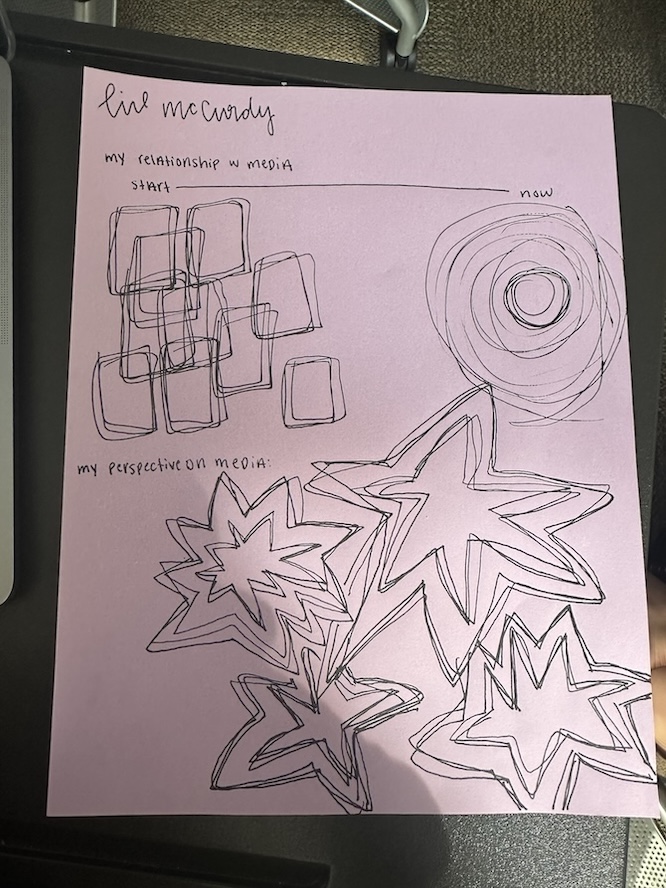 liv mccurdy
my relationship w media
start now
my perspective on media: